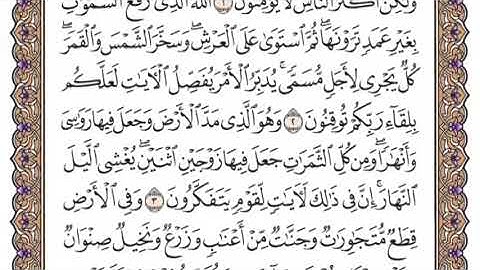 وَلَٰكِنَّ أَكْثَرَ ٱلنَّاسِ لَا يُؤْمِنُونَ ١ ٱللَّهُ ٱلَّذِى رَفَعَ ٱلسَّمَٰوَٰتِ
بِغَيْرِ عَمَدٍ تَرَوْنَهَا ۖ ثُمَّ ٱسْتَوَىٰ عَلَى ٱلْعَرْشِ ۖ وَسَخَّرَ ٱلشَّمْسَ وَٱلْقَمَرَ ۖ
كُلٌّ يَجْرِى لِأَجَلٍ مُّسَمًّى ۚ يُدَبِّرُ ٱلْأَمْرَ يُفَصِّلُ ٱلْءَايَٰتِ لَعَلَّكُم
بِلِقَآءِ رَبِّكُمْ تُوقِنُونَ ٢ وَهُوَ ٱلَّذِى مَدَّ ٱلْأَرْضَ وَجَعَلَ فِيهَا رَوَٰسِىَ
وَأَنْهَٰرًا ۖ وَمِن كُلِّ ٱلثَّمَرَٰتِ جَعَلَ فِيهَا زَوْجَيْنِ ٱثْنَيْنِ ۖ يُغْشِى ٱلَّيْلَ
ٱلنَّهَارَ ۚ إِنَّ فِى ذَٰلِكَ لَءَايَٰتٍ لِّقَوْمٍ يَتَفَكَّرُونَ ٣ وَفِى ٱلْأَرْضِ
قِطَعٌ مُّتَجَٰوِرَٰتٌ وَجَنَّٰتٌ مِّنْ أَعْنَٰبٍ وَزَرْعٌ وَنَخِيلٌ صِنْوَانٌ